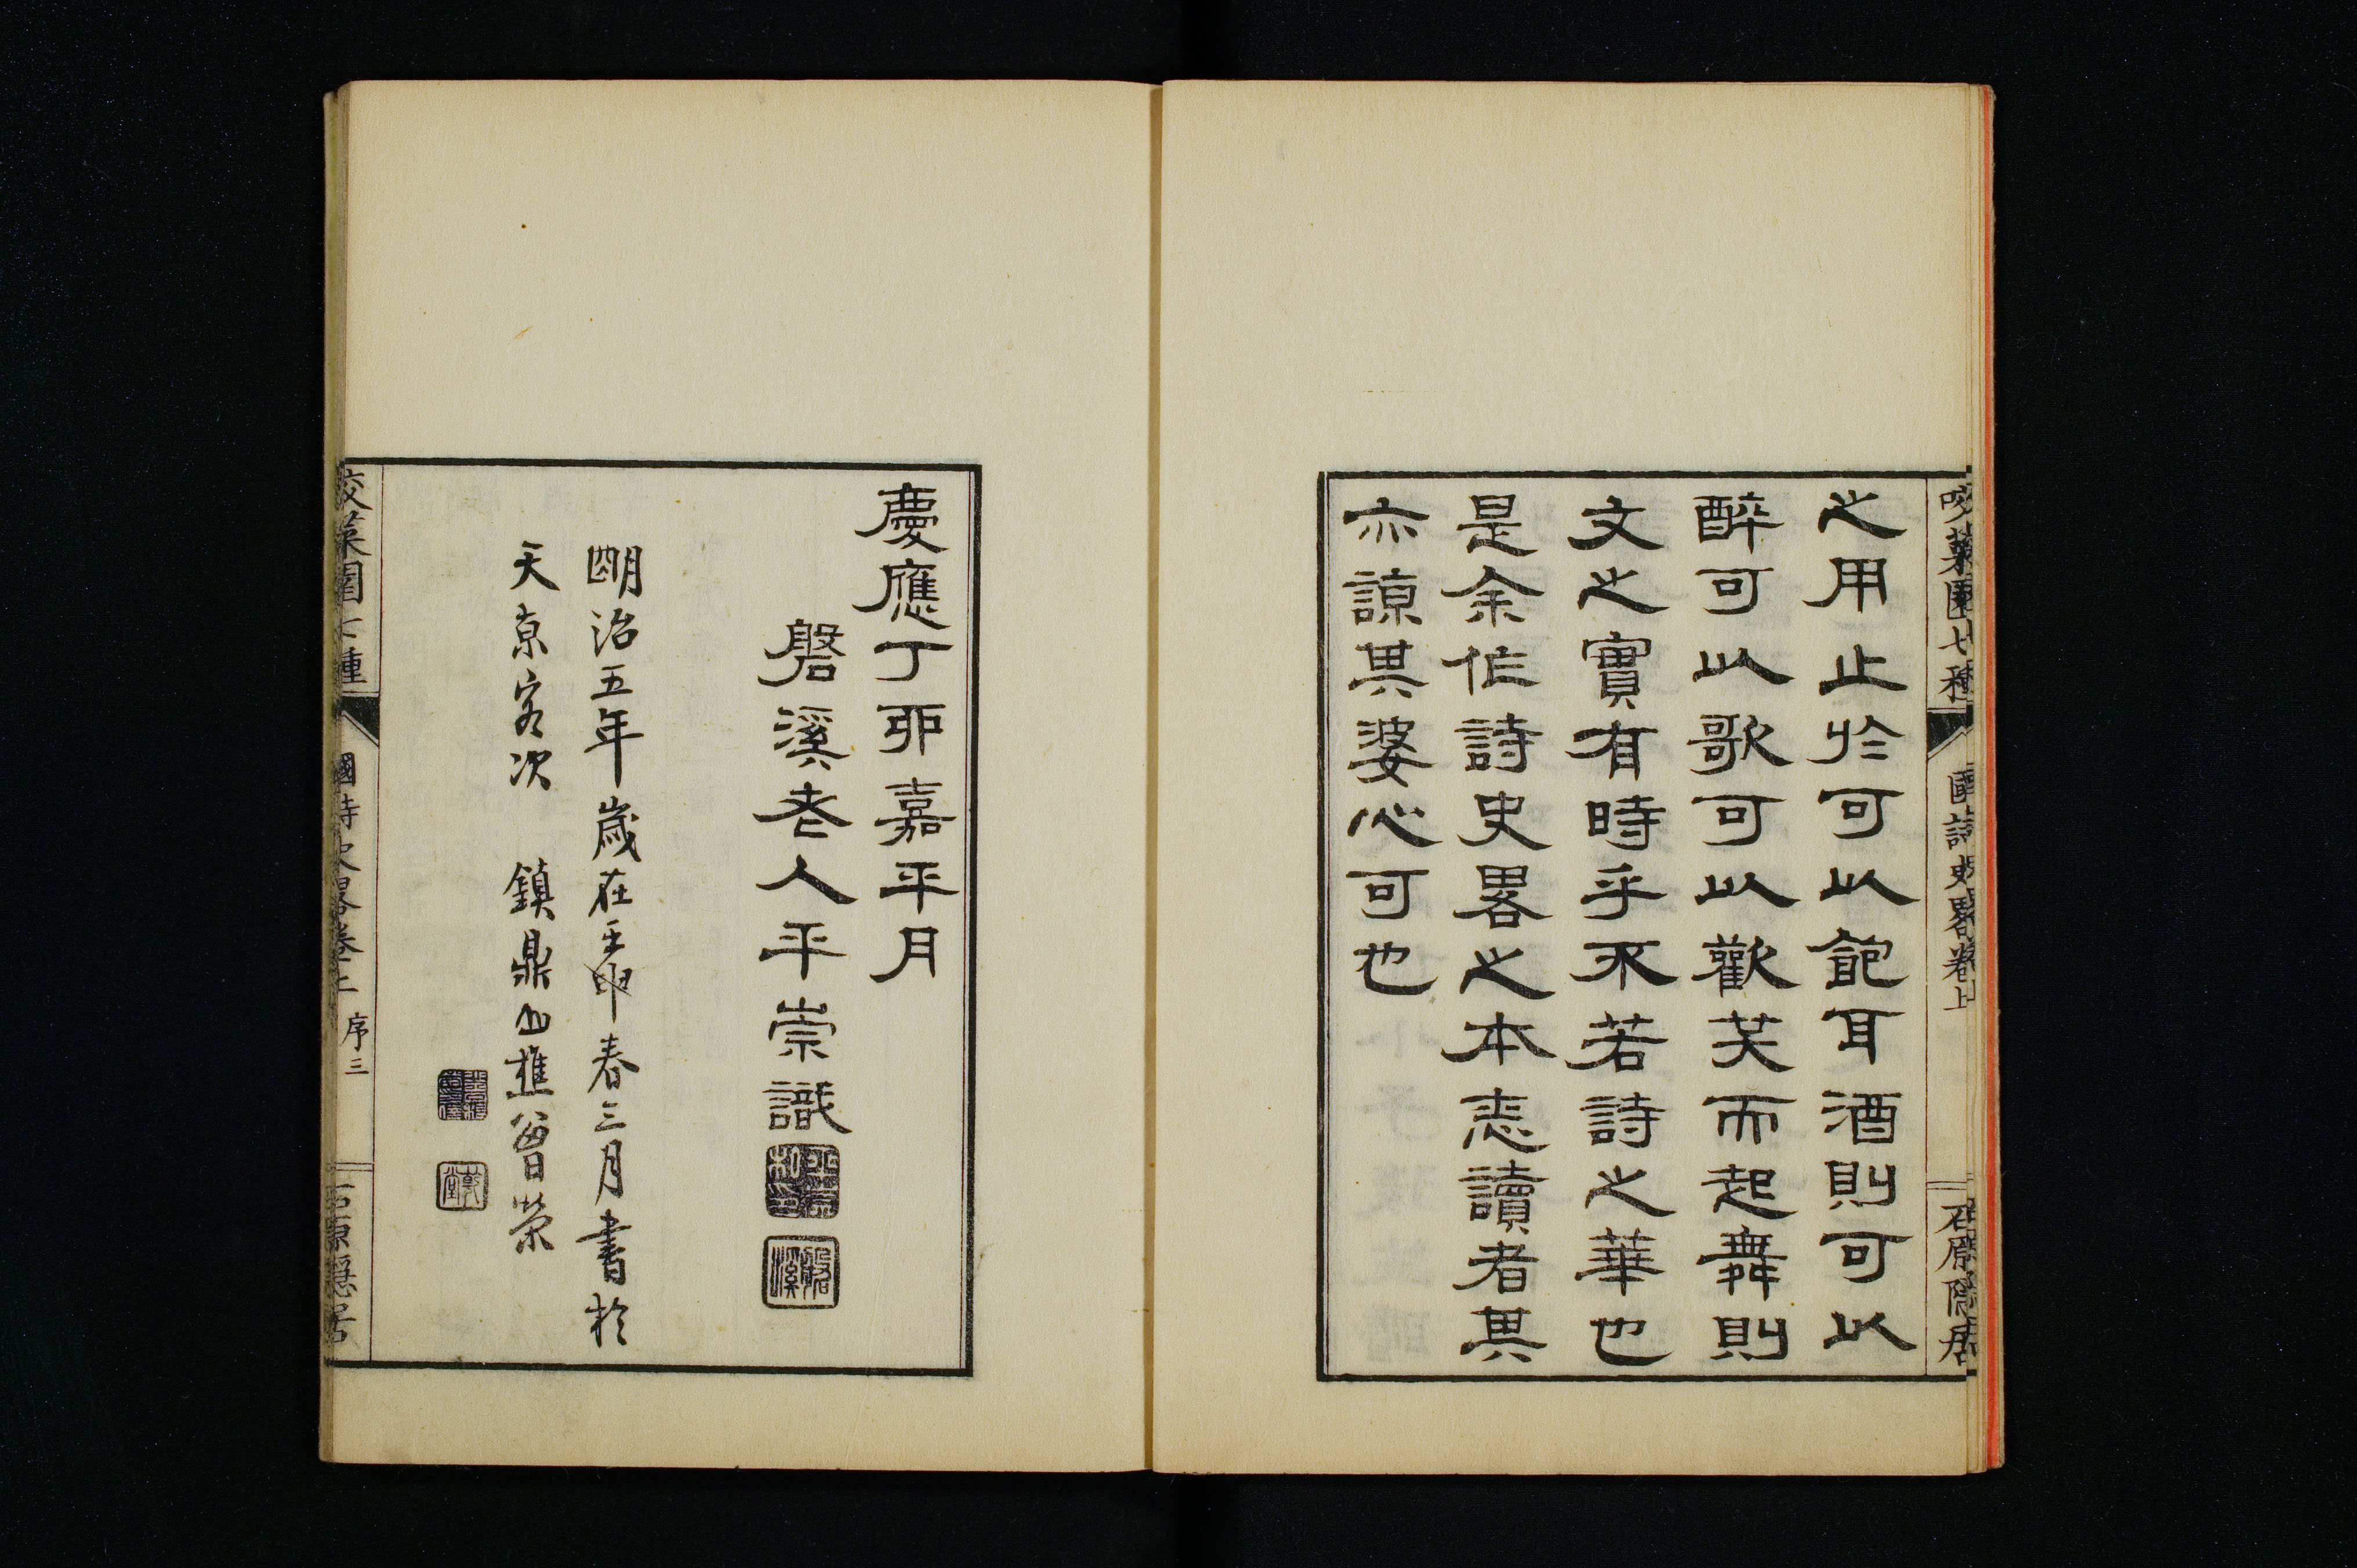 咬菜園七種 國詩史略卷上 石原隱居
之用止於可以飽耳酒則可以
醉可以歌可以歡笑而起舞則
文之實有時乎不若詩之華也
是余作詩史畧之本志讀者其
亦諒其婆心可也
慶應丁卯嘉平月
磐溪老人平崇識
磐溪
明治五年歲在壬申春三月書於
天京客次 鎮鼎山樵曾榮
咬菜園七種 國詩史畧卷上 序三 石原隱居